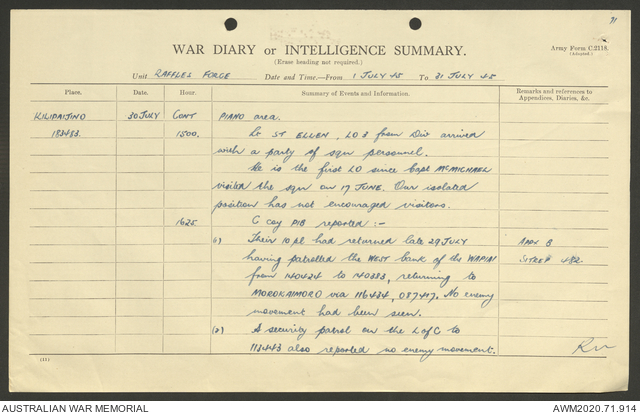 71
WAR DIARY or INTELLIGENCE SUMMARY.
Army Form C.2118.
(Adapted.)
(Erase heading not required.)
Unit RAFFLES FORCE Date and Time.—From 1 JULY 45 To 31 JULY 45
Place. Date. Hour. Summary of Events and Information. Remarks and references to Appendices, Diaries, &c.
KILIPAIJINO 30 JULY CONT PIANO area.
183483. 1500. Lt ST ELLEN, LO 3 from Div arrived
with a party of sqn personnel.
He is the first LO since Capt McMICHAEL
visited the sqn on 17 JUNE. Our isolated
position has not encouraged visitors.
1625 C coy PIB reported :-
(1) Their 10 pl had returned late 29 JULY APPX B
having patrolled the WEST bank of the WAPIAI SITREP 482
from 140424 to 140383, returning to
MOROKAIMORO via 116434, 087417. No enemy
movement had been seen.
(2) A security patrol on the L of C to
113443 also reported no enemy movement.
(11)
AUSTRALIAN WAR MEMORIAL AWM2020.71.914